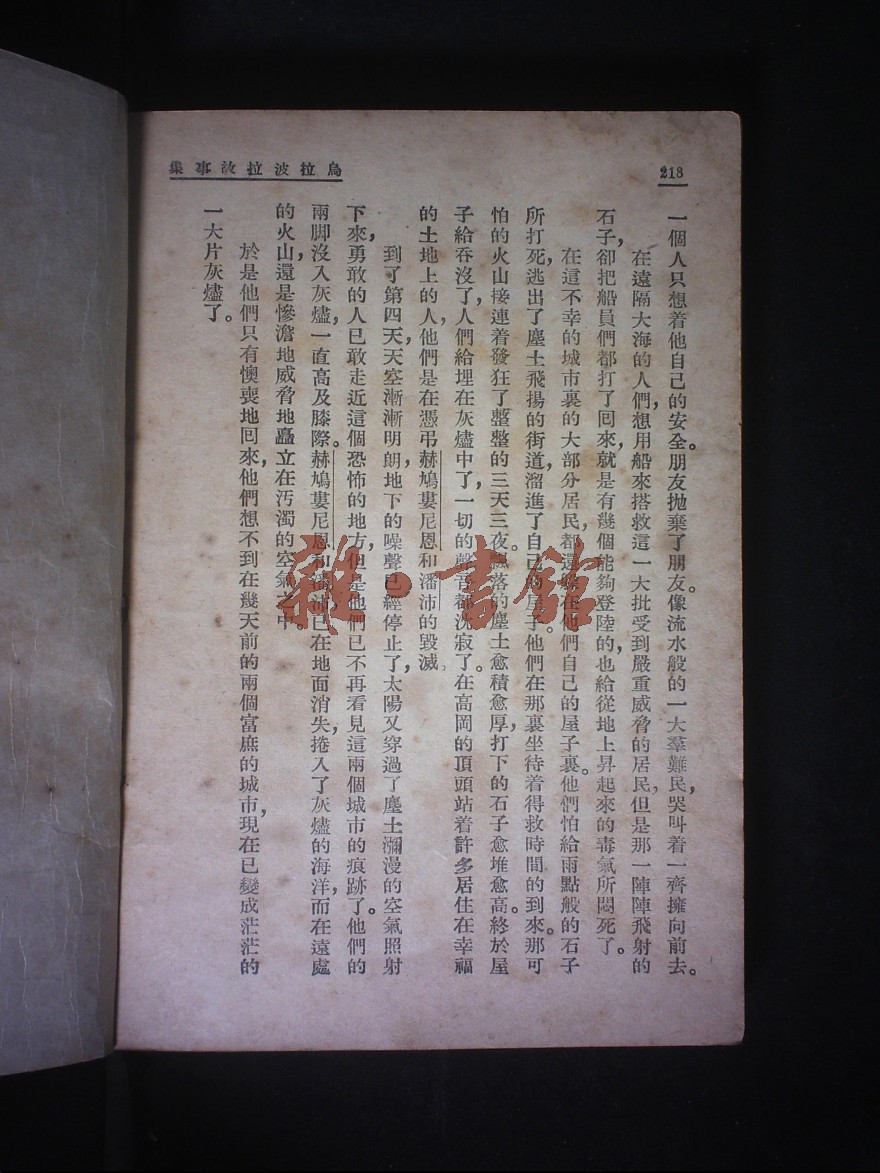 218
烏拉波拉故事集
一個人只想着他自己的安全。朋友拋棄了朋友。像流水般的一大羣難民，哭叫着一齊擁向前去。
在遠隔大海的人們，想用船來搭救這一大批受到嚴重威脅的居民，但是那一陣陣飛射的
石子，卻把船員們都打了回來，就是有幾個能夠登陸的，也給從地上昇起來的毒氣所悶死了。
在這不幸的城市裏的大部分居民，都還躲在他們自己的屋子裏。他們怕給雨點般的石子
所打死，逃出了塵土飛揚的街道，溜進了自己的屋子。他們在那裏坐待着得救時間的到來。那可
怕的火山接連着發狂了整整的三天三夜。飄落的塵土愈積愈厚，打下的石子愈堆愈高。終於屋
子給吞沒了，人們給埋在灰燼中了，一切的聲音都沈寂了。在高岡的頂頭站着許多居住在幸福
的土地上的人，他們是在憑弔赫鳩婁尼恩和潘沛的毀滅。
到了第四天，天空漸漸明朗，地下的噪聲已經停止了，太陽又穿過了塵土瀰漫的空氣照射
下來，勇敢的人已敢走近這個恐怖的地方，但是他們已不再看見這兩個城市的痕跡了。他們的
兩脚沒入灰燼，一直高及膝際。赫鳩婁尼恩和潘沛已在地面消失，捲入了灰燼的海洋，而在遠處
的火山，還是慘澹地威脅地矗立在汚濁的空氣之中。
於是他們只有懊喪地回來，他們想不到在幾天前的兩個富庶的城市，現在已變成茫茫的
一大片灰燼了。
雜·書館